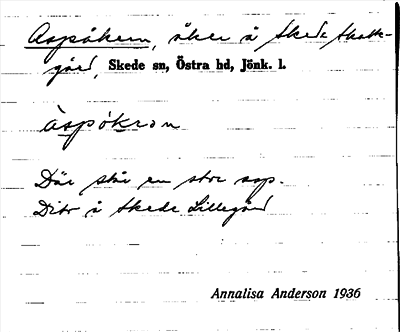 Aspåkern, åker å Skede Skatte-
gård, Skede sn, Östra hd, Jönk. l.
àspókron
Där står en stor asp.
Dito å Skede Lillegård
Annalisa Anderson 1936